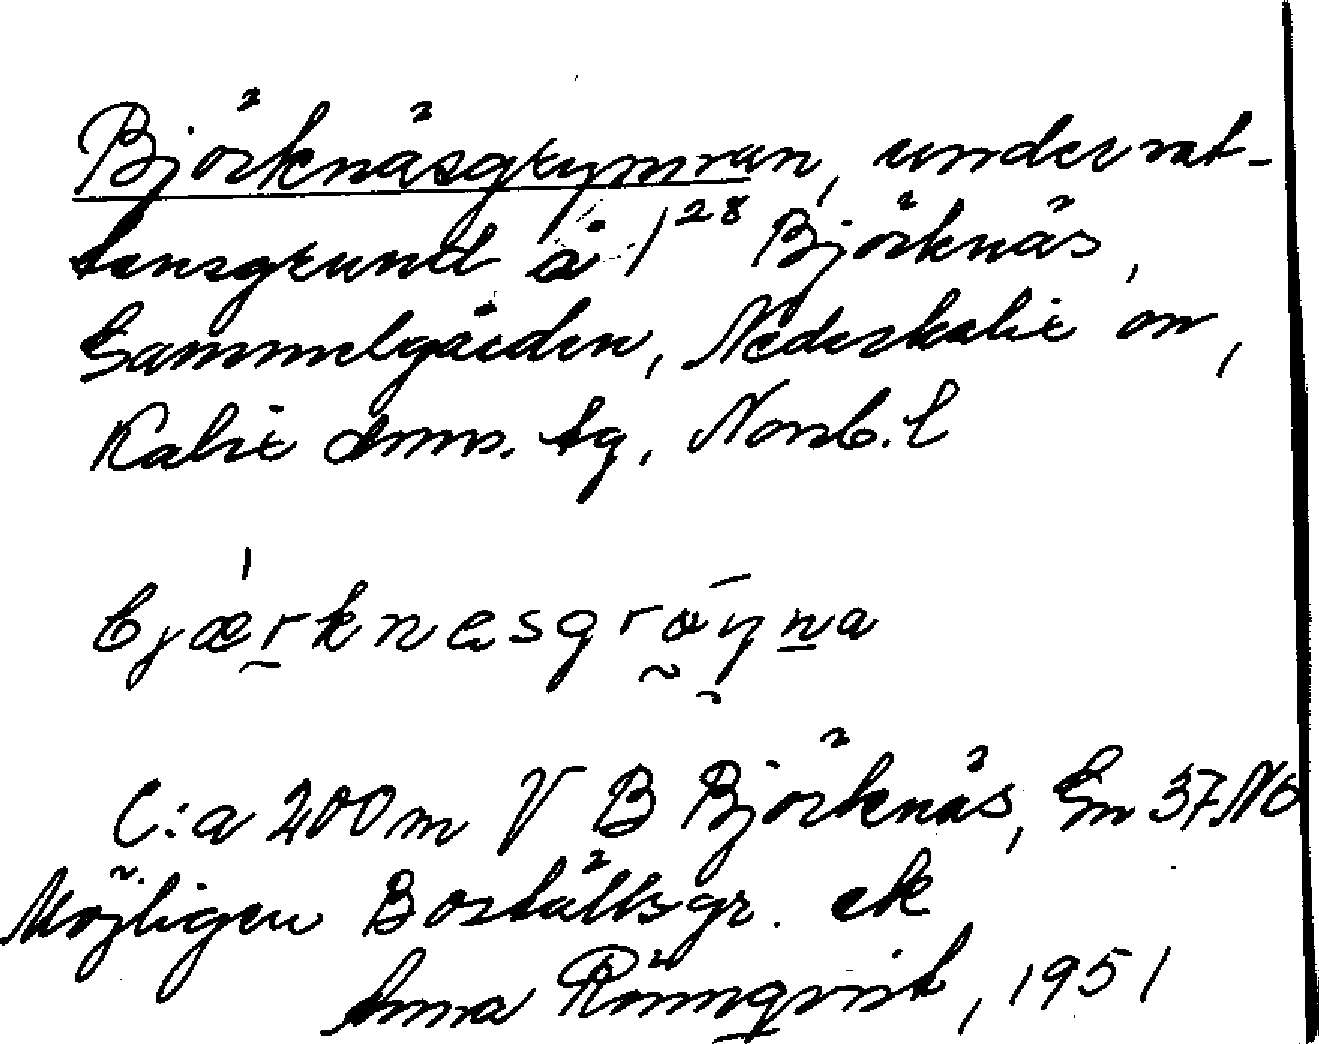 Björknäsgrynnan, undervat-
tensgrund å 1²⁸ Björknäs,
Gammelgården, Nederkalix sn,
Kalix tg, Norrb. l
bjærknesgrøyna
C:a 200 m V B Björknäs, Gn 37 NO
Möjligen Boställsgr. ek
Anna Rönnqvist, 1951